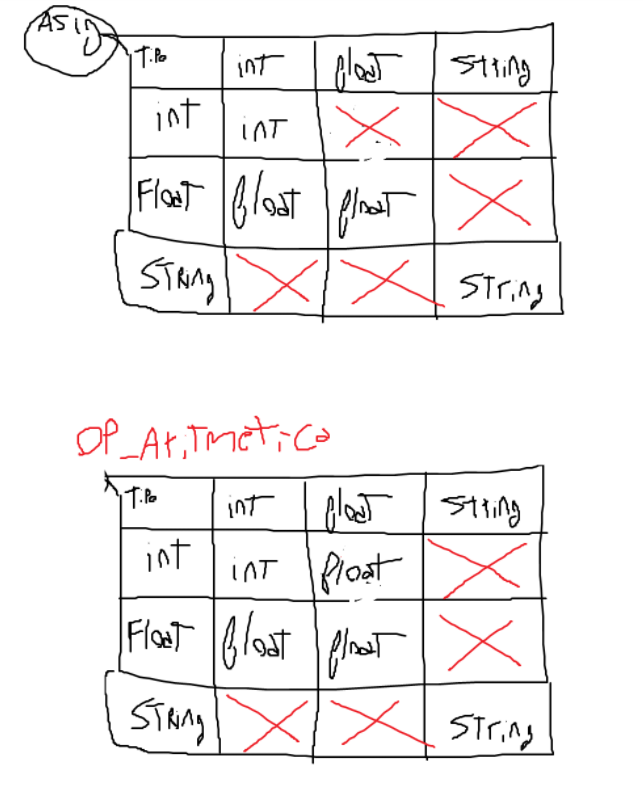 Asig
Tipo int float String
int int
Float float float
STRing STring
OP_AriTmeTica
Tipo int float String
int int float
Float float float
STRing STring